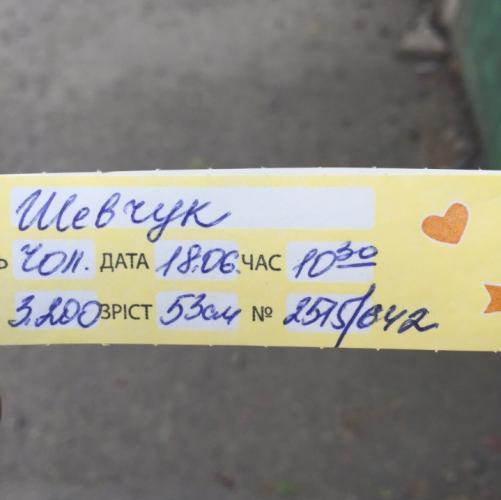 Шевчук
Ь Чол. ДАТА 18.06. ЧАС 10³⁰
3.200 ЗРІСТ 53см № 2575/642